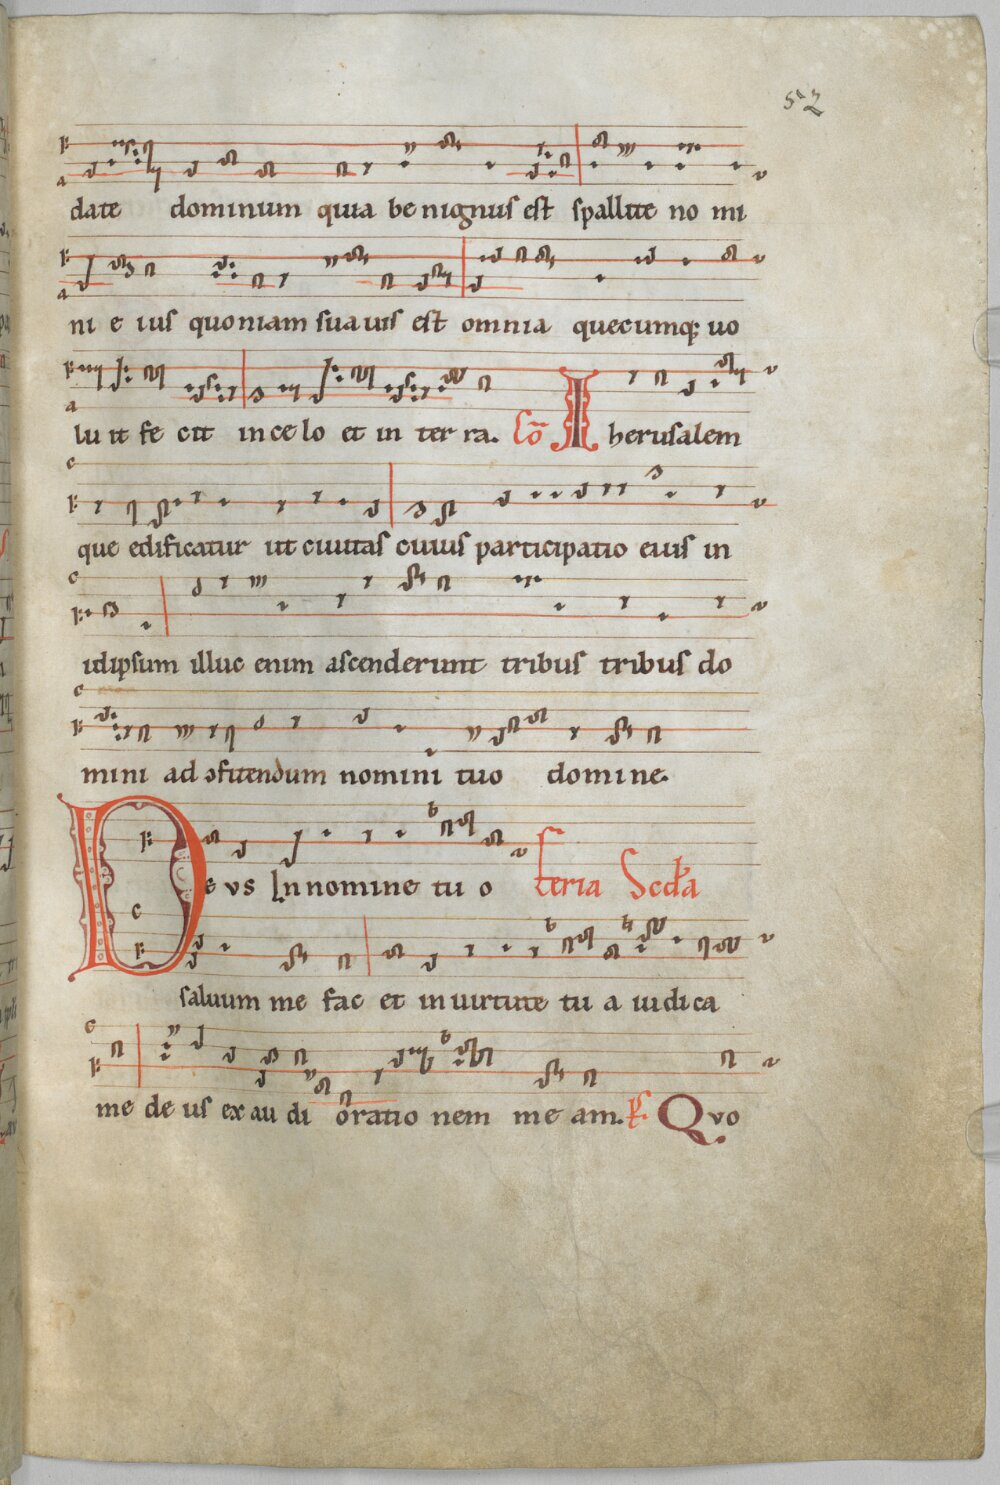 52
date dominum quia benignus est spallite no mi
ni e ius quoniam suauis est omnia quecumq; uo
lu it fe cit in ce lo et in ter ra. Cō Iherusalem
que edificatur ut ciuitas cuius participatio eius in
idipsum illuc enim ascenderunt tribus tribus do
mini ad ↄfitendum nomini tuo domine.
Deus In nomine tu o feria Scd'a
saluum me fac et in uirtute tu a iudi ca
me de us ex au di oratio nem me am. Ps Quo